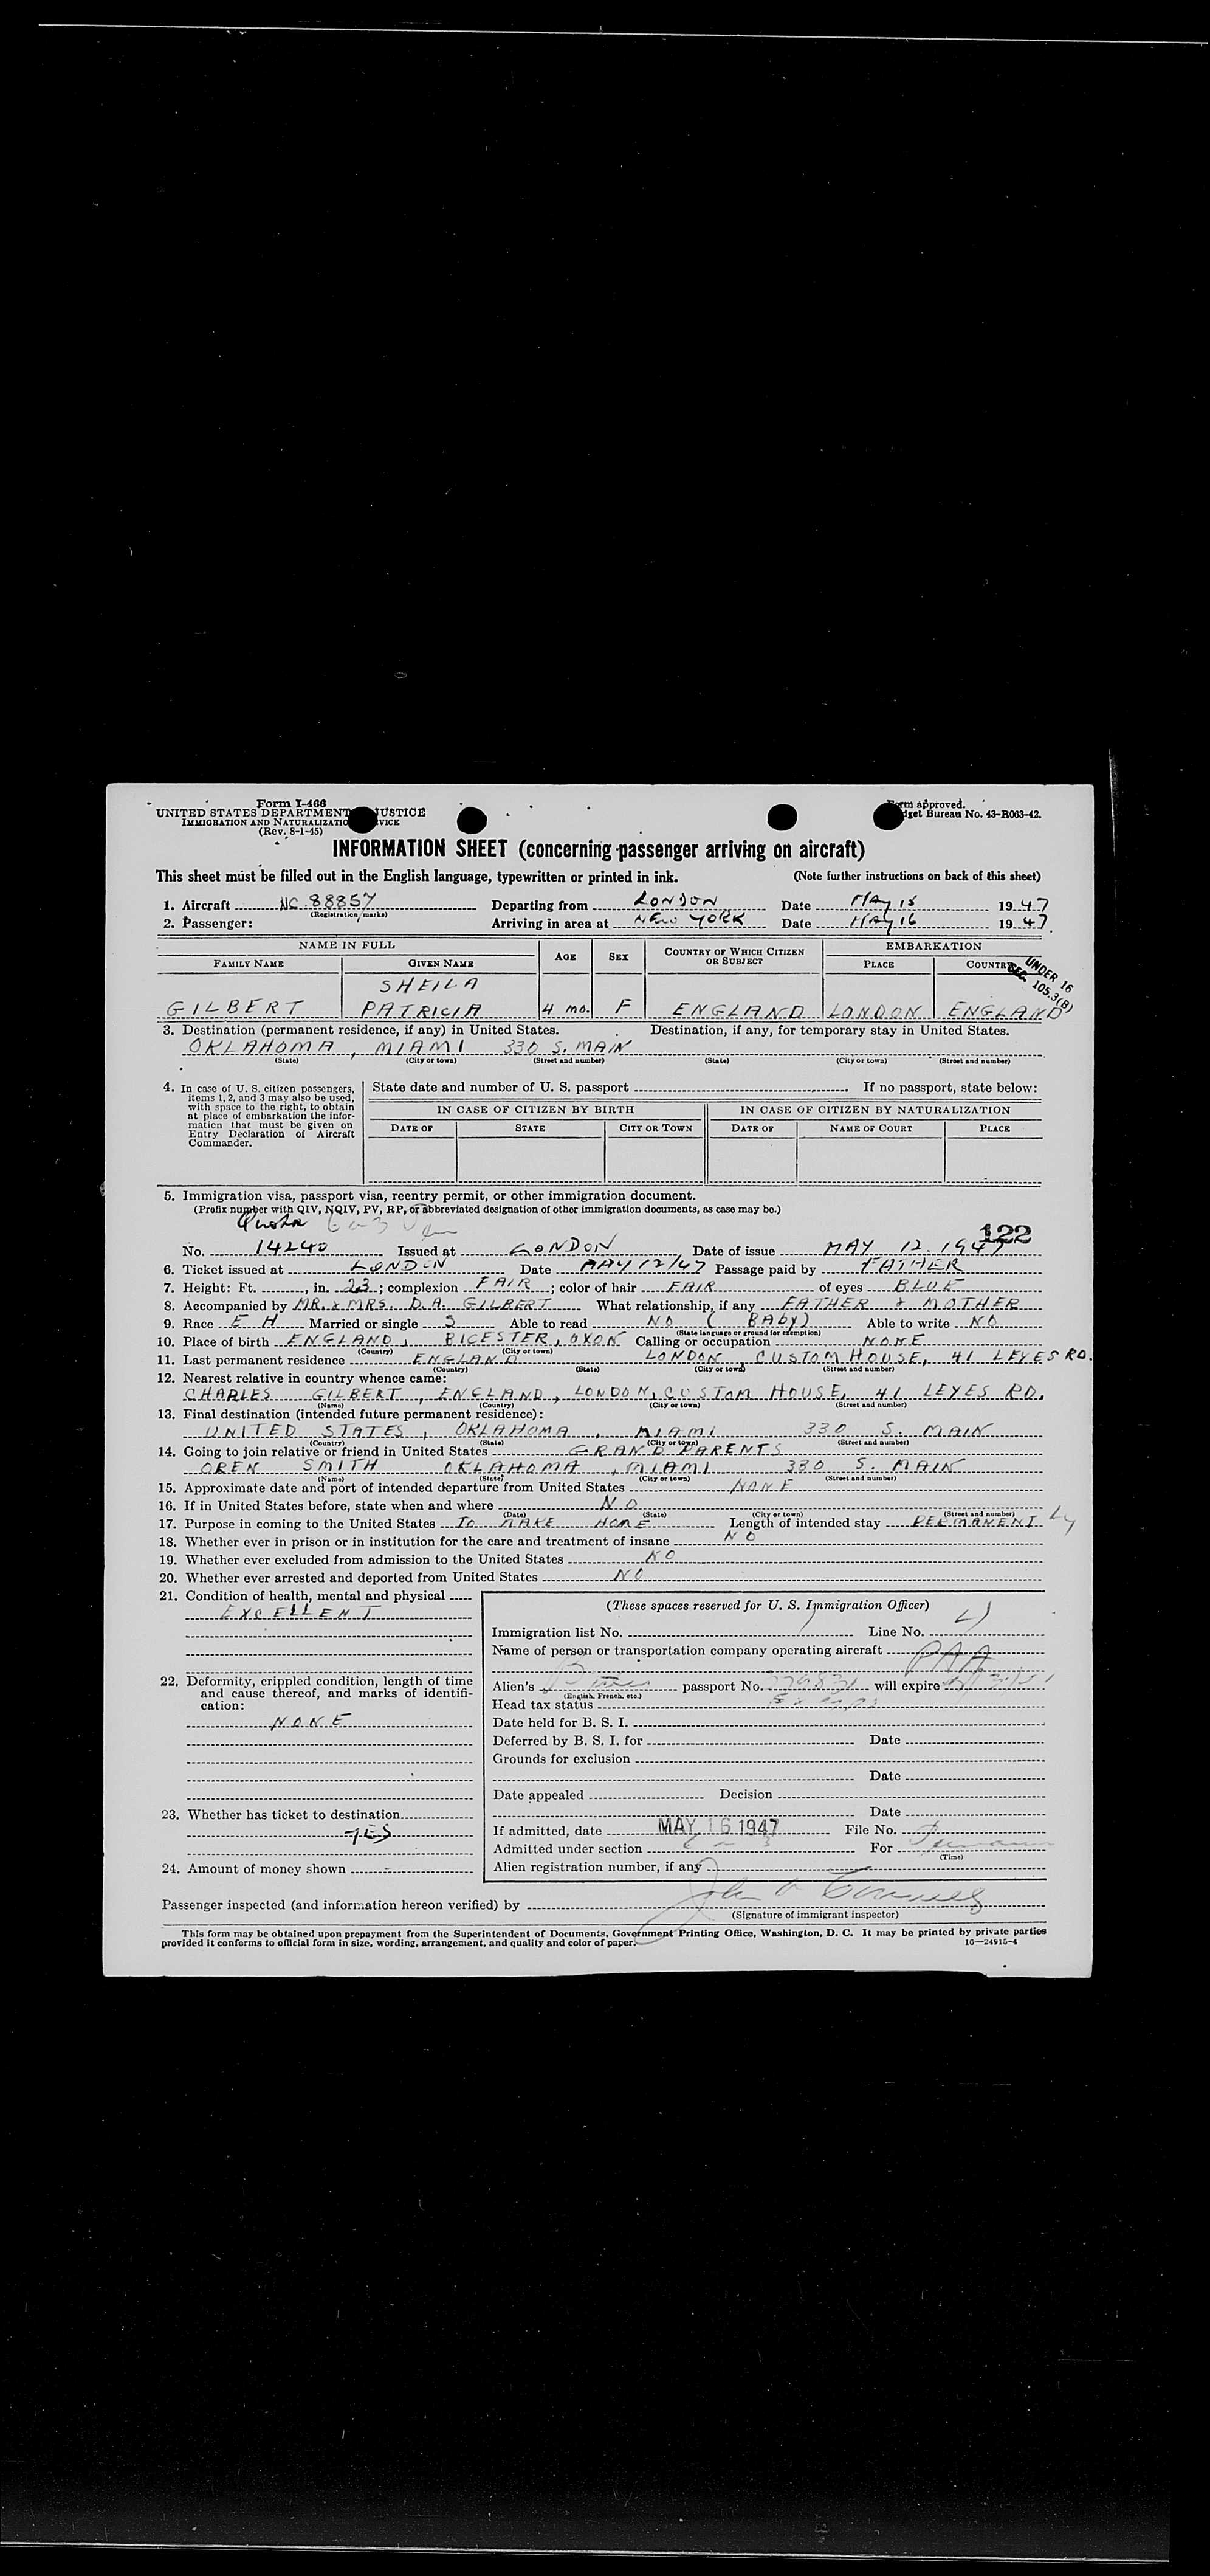 Form I-466
UNITED STATES DEPARTMENT JUSTICE
IMMIGRATION AND NATURALIZATIO VICE
(Rev. 8-1-45)
rm approved.
get Bureau No. 43-R063-42.
INFORMATION SHEET (concerning passenger arriving on aircraft)
This sheet must be filled out in the English language, typewritten or printed in ink. (Note further instructions on back of this sheet)
1. Aircraft NC 88857 Departing from LONDON Date MAY 15 1947
(Registration marks)
2. Passenger: Arriving in area at NEW YORK Date MAY 16 1947
NAME IN FULL AGE SEX COUNTRY OF WHICH CITIZEN OR SUBJECT EMBARKATION
FAMILY NAME GIVEN NAME PLACE COUNTRY
UNDER 16
SEC. 105.3(B)
SHEILA
GILBERT PATRICIA 4 mo. F ENGLAND LONDON ENGLAND
3. Destination (permanent residence, if any) in United States. Destination, if any, for temporary stay in United States.
OKLAHOMA, MIAMI 330 S. MAIN
(State) (City or town) (Street and number) (State) (City or town) (Street and number)
4. In case of U. S. citizen passengers, items 1, 2, and 3 may also be used, with space to the right, to obtain at place of embarkation the information that must be given on Entry Declaration of Aircraft Commander.
State date and number of U. S. passport If no passport, state below:
IN CASE OF CITIZEN BY BIRTH IN CASE OF CITIZEN BY NATURALIZATION
DATE OF STATE CITY OR TOWN DATE OF NAME OF COURT PLACE
5. Immigration visa, passport visa, reentry permit, or other immigration document.
(Prefix number with QIV, NQIV, PV, RP, or abbreviated designation of other immigration documents, as case may be.)
Quota
122
No. 14240 Issued at LONDON Date of issue MAY 12. 1947
6. Ticket issued at LONDON Date MAY/12/47 Passage paid by FATHER
7. Height: Ft. , in. 23; complexion FAIR; color of hair FAIR of eyes BLUE
8. Accompanied by MR. & MRS. D. A. GILBERT What relationship, if any FATHER & MOTHER
9. Race E H Married or single S Able to read NO (BABY) Able to write NO
(State language or ground for exemption)
10. Place of birth ENGLAND, BICESTER, OXON Calling or occupation NONE
(Country) (City or town)
11. Last permanent residence ENGLAND LONDON, CUSTOM HOUSE, 41 LEYES RD.
(Country) (State) (City or town) (Street and number)
12. Nearest relative in country whence came:
CHARLES GILBERT, ENGLAND, LONDON, CUSTOM HOUSE, 41 LEYES RD.
(Name) (Country) (City or town) (Street and number)
13. Final destination (intended future permanent residence):
UNITED STATES, OKLAHOMA, MIAMI 330 S. MAIN
(Country) (State) (City or town) (Street and number)
14. Going to join relative or friend in United States GRAND PARENTS
OREN SMITH OKLAHOMA, MIAMI 330 S. MAIN
(Name) (State) (City or town) (Street and number)
15. Approximate date and port of intended departure from United States NONE
16. If in United States before, state when and where NO
(Date) (State) (City or town) (Street and number)
17. Purpose in coming to the United States TO MAKE HOME Length of intended stay PERMANENT LY
18. Whether ever in prison or in institution for the care and treatment of insane NO
19. Whether ever excluded from admission to the United States NO
20. Whether ever arrested and deported from United States NO
21. Condition of health, mental and physical
EXCELLENT
22. Deformity, crippled condition, length of time and cause thereof, and marks of identification:
NONE
23. Whether has ticket to destination
YES
24. Amount of money shown
(These spaces reserved for U. S. Immigration Officer)
Immigration list No. Line No.
Name of person or transportation company operating aircraft PAA
Alien's passport No. will expire
(English, French, etc.)
Head tax status
Date held for B. S. I.
Deferred by B. S. I. for Date
Grounds for exclusion
Date
Date appealed Decision
Date
If admitted, date MAY 16 1947 File No.
Admitted under section For
(Time)
Alien registration number, if any
Passenger inspected (and information hereon verified) by
(Signature of immigrant inspector)
This form may be obtained upon prepayment from the Superintendent of Documents, Government Printing Office, Washington, D. C. It may be printed by private parties
provided it conforms to official form in size, wording, arrangement, and quality and color of paper. 16—24915-4